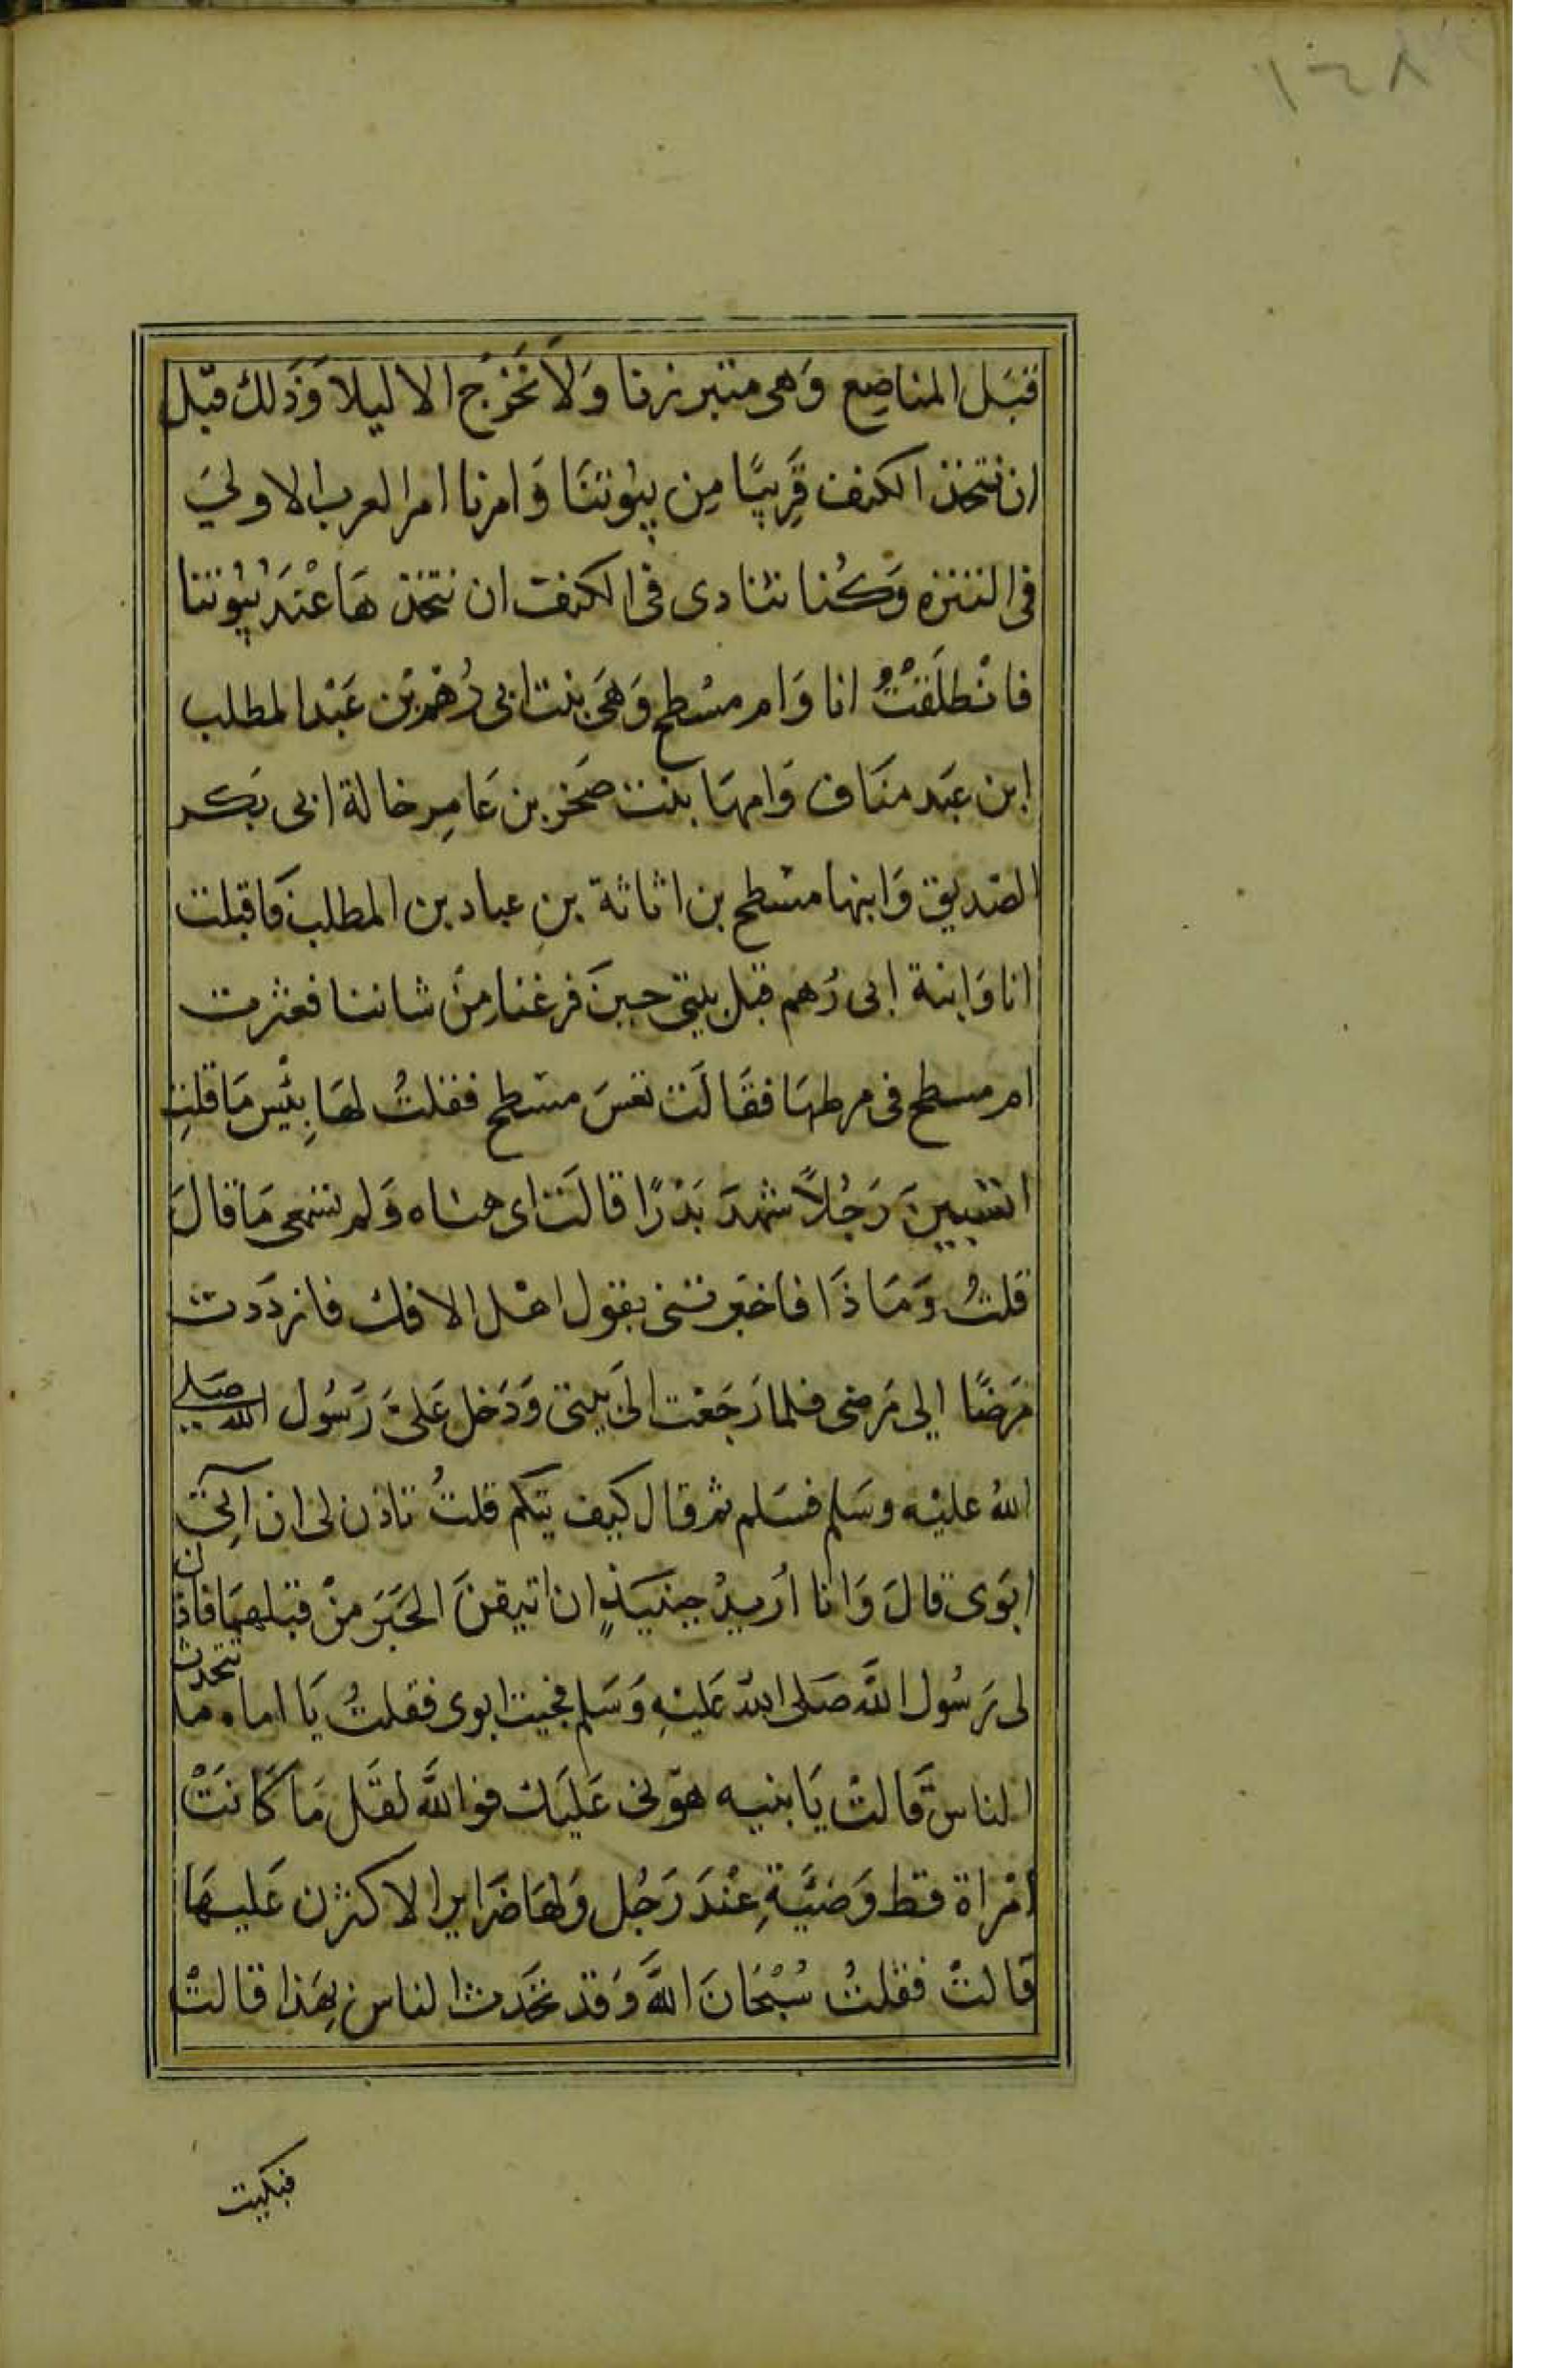 ١٤٨
قبَل المناصِع وَهى متبرزنا وَلَا نَخرُج الا ليلاً وَذَلك قبْل
ان نتخذ الكنف قَرِيبًا مِن بيُوتنَا وَامرنا امر العرب الاولىَ
فى التنزه وَكُنا نتادى فى الكنف ان نتخذ هَا عْندَ بُيُوتنا
فانْطلَقْتُ انا وَام مسْطح وَهىَ بنت ابى رُهْم بْن عَبْد المطلب
ابن عَبَد منَاف وَامهَا بنت صَخر بن عَامِر خالة ابى بَكر
الصّديق وَابنها مسْطح بن اثاثة بنِ عباد بن المطلب فَاقبلت
انا وَابنة ابى رُهم قبل بيتى حينَ فرغنا مِنْ شاننا فعثرت
ام مسطح فى مرطهَا فقَالَت تعسَ مسْطح فقلتُ لهَا بِئْس مَا قلتِ
اتسبينَ رَجُلاً شهدَ بَدْرًا قالَت اى هنتاه وَلم تسْمعى مَا قالَ
قلتُ وَمَا ذَا فاخبَرتنى بقول اهْل الافك فازدَدت
مَرضًا الى مَرضى فلما رَجَعْت الىَ بيَتى وَدَخل عَلىَّ رَسُول الله صَلى
اللهُ عليْه وسَلم فسَلم ثم قال كيف تيكم قلتُ تاذن لى ان آتِىَ
ابَوى قالَ وَانا أرُيدُ حِينَئِذٍ ان اتيقنَ الخبَرَ منْ قبَلهمَا فاذن
لى رَسُول اللَّه صَلى اللهُ عَليْهِ وَسَلم فجيت ابوى فقلتُ يَا اماه ما تتحدث
الناس قَالتْ يَا بنيه هوّنى عَليَك فوَاللَّه لقَل مَا كَانَتْ
امْراة قط وَضيَّة عِنْدَ رَجُل وَلهَا ضَراير الا كثرن عَليهَا
قَالتْ فقلتُ سُبْحَانَ اللَّه وَقد تحَدث الناس بِهَذا قالتْ
فبكيت